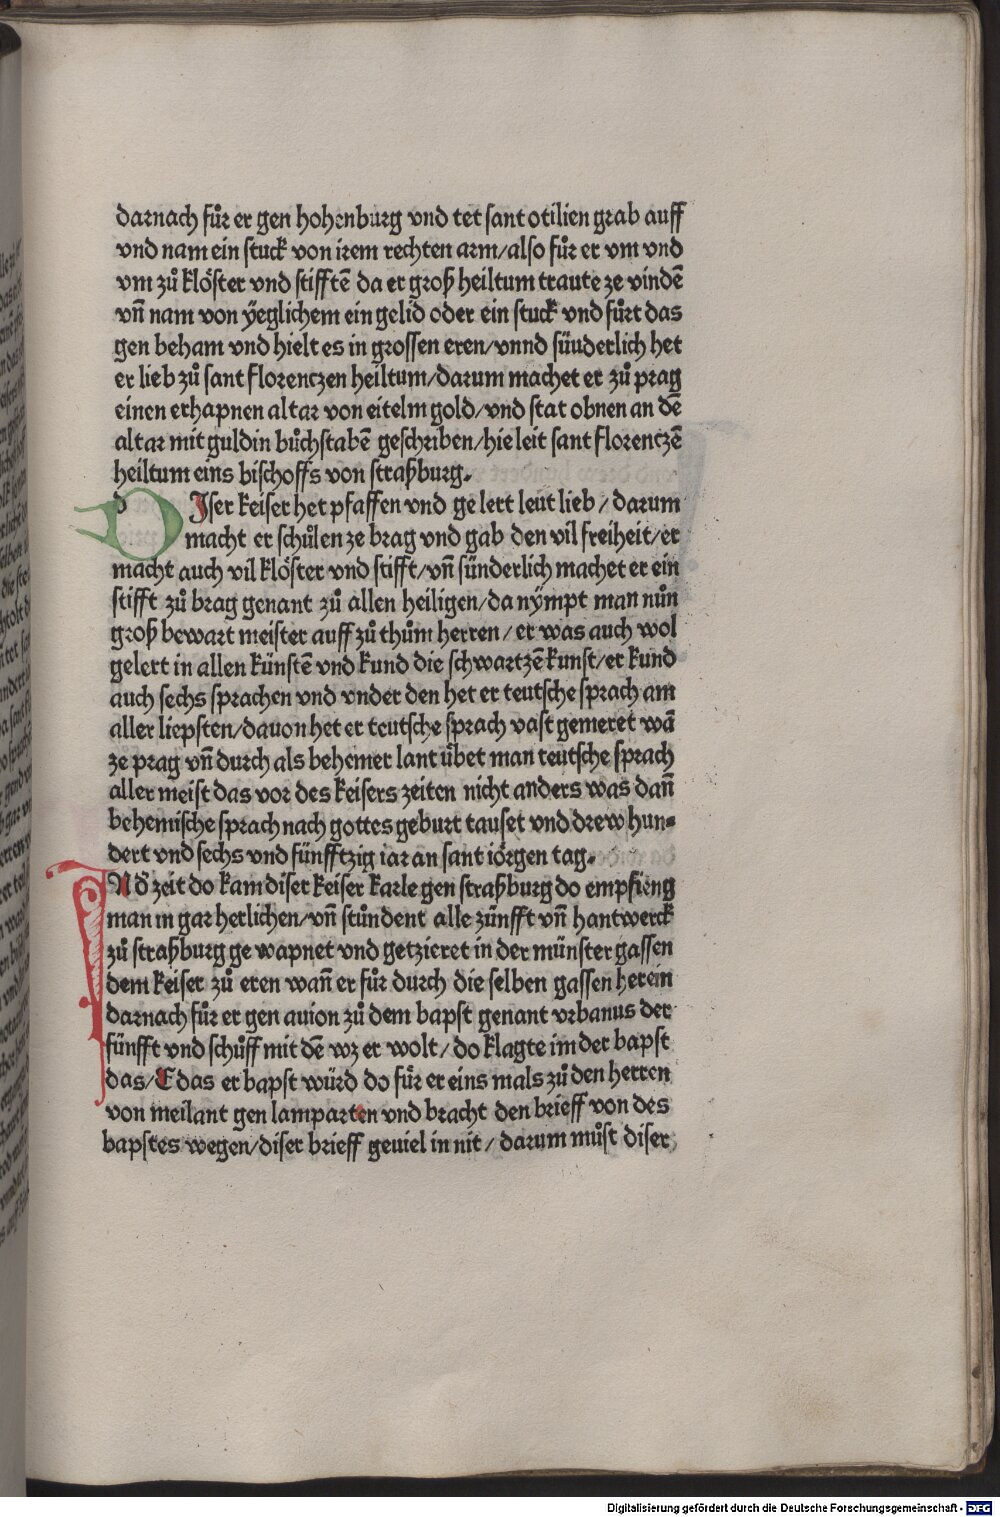 darnach fuͦr er gen hohenburg vnd tet sant otilien grab auff
vnd nam ein stuck von irem rechten arm/also fuͦr er vm vnd
vm zuͦ kloͤster vnd stifftē da er groß heiltum traute ze vindē
vn̄ nam von ÿeglichem ein gelid oder ein stuck vnd fuͦrt das
gen beham vnd hielt es in grossen eren/vnnd süuderlich het
er lieb zuͦ sant florentzen heiltum/darum machet er zuͦ prag
einen erhapnen altar von eitelm gold/vnd stat obnen an dē
altar mit guldin buͦchstabē geschriben/hie leit sant florentzē
heiltum eins bischoffs von straßburg.
DIser keiser het pfaffen vnd gelert leut lieb/darum
macht er schuͦlen ze brag vnd gab den vil freiheit/er
macht auch vil kloͤster vnd stifft/vn̄ sünderlich machet er ein
stifft zuͦ brag genant zuͦ allen heiligen/da nÿmpt man nuͦn
groß bewart meister auff zuͦ thuͦm herren/er was auch wol
gelert in allen künstē vnd kund die schwartzē kunst/er kund
auch sechs sprachen vnd vnder den het er teutsche sprach am
aller liepsten/dauon het er teutsche sprach vast gemeret wā
ze prag vn̄ durch als behemer lant übet man teutsche sprach
aller meist das vor des keisers zeiten nicht anders was dan̄
behemische sprach nach gottes geburt tauset vnd drew hun-
dert vnd sechs vnd fünfftzig iar an sant ioͤrgen tag.
IN d' zeit do kam diser keiser karle gen straßburg do empfieng
man in gar herlichen/vn̄ stuͦndent alle zünfft vn̄ hantwerck
zuͦ straßburg gewapnet vnd getzieret in der münster gassen
dem keiser zuͦ eren wan̄ er fuͦr durch die selben gassen herein
darnach fuͦr er gen auion zuͦ dem bapst genant vrbanus der
fünfft vnd schuͦff mit dē wz er wolt/do klagte im der bapst
das/E das er bapst würd do fuͦr er eins mals zuͦ den herren
von meilant gen lamparten vnd bracht den brieff von des
bapstes wegen/diser brieff geuiel in nit/darum muͦst diser
Digitalisierung gefördert durch die Deutsche Forschungsgemeinschaft - DFG